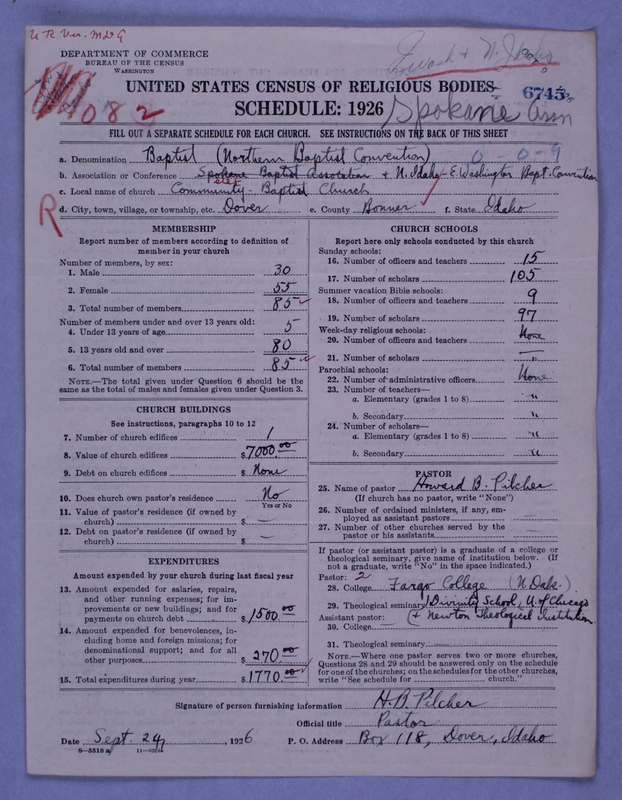 U R Ver. M L G
DEPARTMENT OF COMMERCE
BUREAU OF THE CENSUS
WASHINGTON
E. Wash + N. Idaho
UNITED STATES CENSUS OF RELIGIOUS BODIES
6745
SCHEDULE: 1926
Spokane Assn
082
FILL OUT A SEPARATE SCHEDULE FOR EACH CHURCH. SEE INSTRUCTIONS ON THE BACK OF THIS SHEET
a. Denomination Baptist (Northern Baptist Convention) 0-0-9
b. Association or Conference Spokane Baptist Association + N. Idaho-E. Washington Bapt. Convention
c. Local name of church Community Baptist Church
R
d. City, town, village, or township, etc. Dover e. County Bonner f. State Idaho
MEMBERSHIP
Report number of members according to definition of
member in your church
Number of members, by sex:
1. Male 30
2. Female 55
3. Total number of members 85
Number of members under and over 13 years old:
4. Under 13 years of age 5
5. 13 years old and over 80
6. Total number of members 85
NOTE.—The total given under Question 6 should be the
same as the total of males and females given under Question 3.
CHURCH BUILDINGS
See instructions, paragraphs 10 to 12
7. Number of church edifices 1
8. Value of church edifices $7000.00
9. Debt on church edifices $ None
10. Does church own pastor's residence No
Yes or No
11. Value of pastor's residence (if owned by
church) $ —
12. Debt on pastor's residence (if owned by
church) $ —
EXPENDITURES
Amount expended by your church during last fiscal year
13. Amount expended for salaries, repairs,
and other running expenses; for im-
provements or new buildings; and for
payments on church debt $1500.00
14. Amount expended for benevolences, in-
cluding home and foreign missions; for
denominational support; and for all
other purposes $270.00
15. Total expenditures during year $1770.00
CHURCH SCHOOLS
Report here only schools conducted by this church
Sunday schools:
16. Number of officers and teachers 15
17. Number of scholars 105
Summer vacation Bible schools:
18. Number of officers and teachers 9
19. Number of scholars 97
Week-day religious schools:
20. Number of officers and teachers None
21. Number of scholars —
Parochial schools:
22. Number of administrative officers None
23. Number of teachers—
a. Elementary (grades 1 to 8) "
b. Secondary "
24. Number of scholars—
a. Elementary (grades 1 to 8) "
b. Secondary "
PASTOR
25. Name of pastor Howard B. Pilcher
(If church has no pastor, write "None")
26. Number of ordained ministers, if any, em-
ployed as assistant pastors —
27. Number of other churches served by the
pastor or his assistants —
If pastor (or assistant pastor) is a graduate of a college or
theological seminary, give name of institution below. (If
not a graduate, write "No" in the space indicated.)
Pastor: 2
28. College Fargo College (N. Dak.)
29. Theological seminary Divinity School, U. of Chicago
Assistant pastor: (+ Newton Theological Institution
30. College
31. Theological seminary
NOTE.—Where one pastor serves two or more churches,
Questions 28 and 29 should be answered only on the schedule
for one of the churches; on the schedules for the other churches,
write "See schedule for church."
Signature of person furnishing information H. B. Pilcher
Official title Pastor
Date Sept. 24, 1926 P. O. Address Box 118, Dover, Idaho